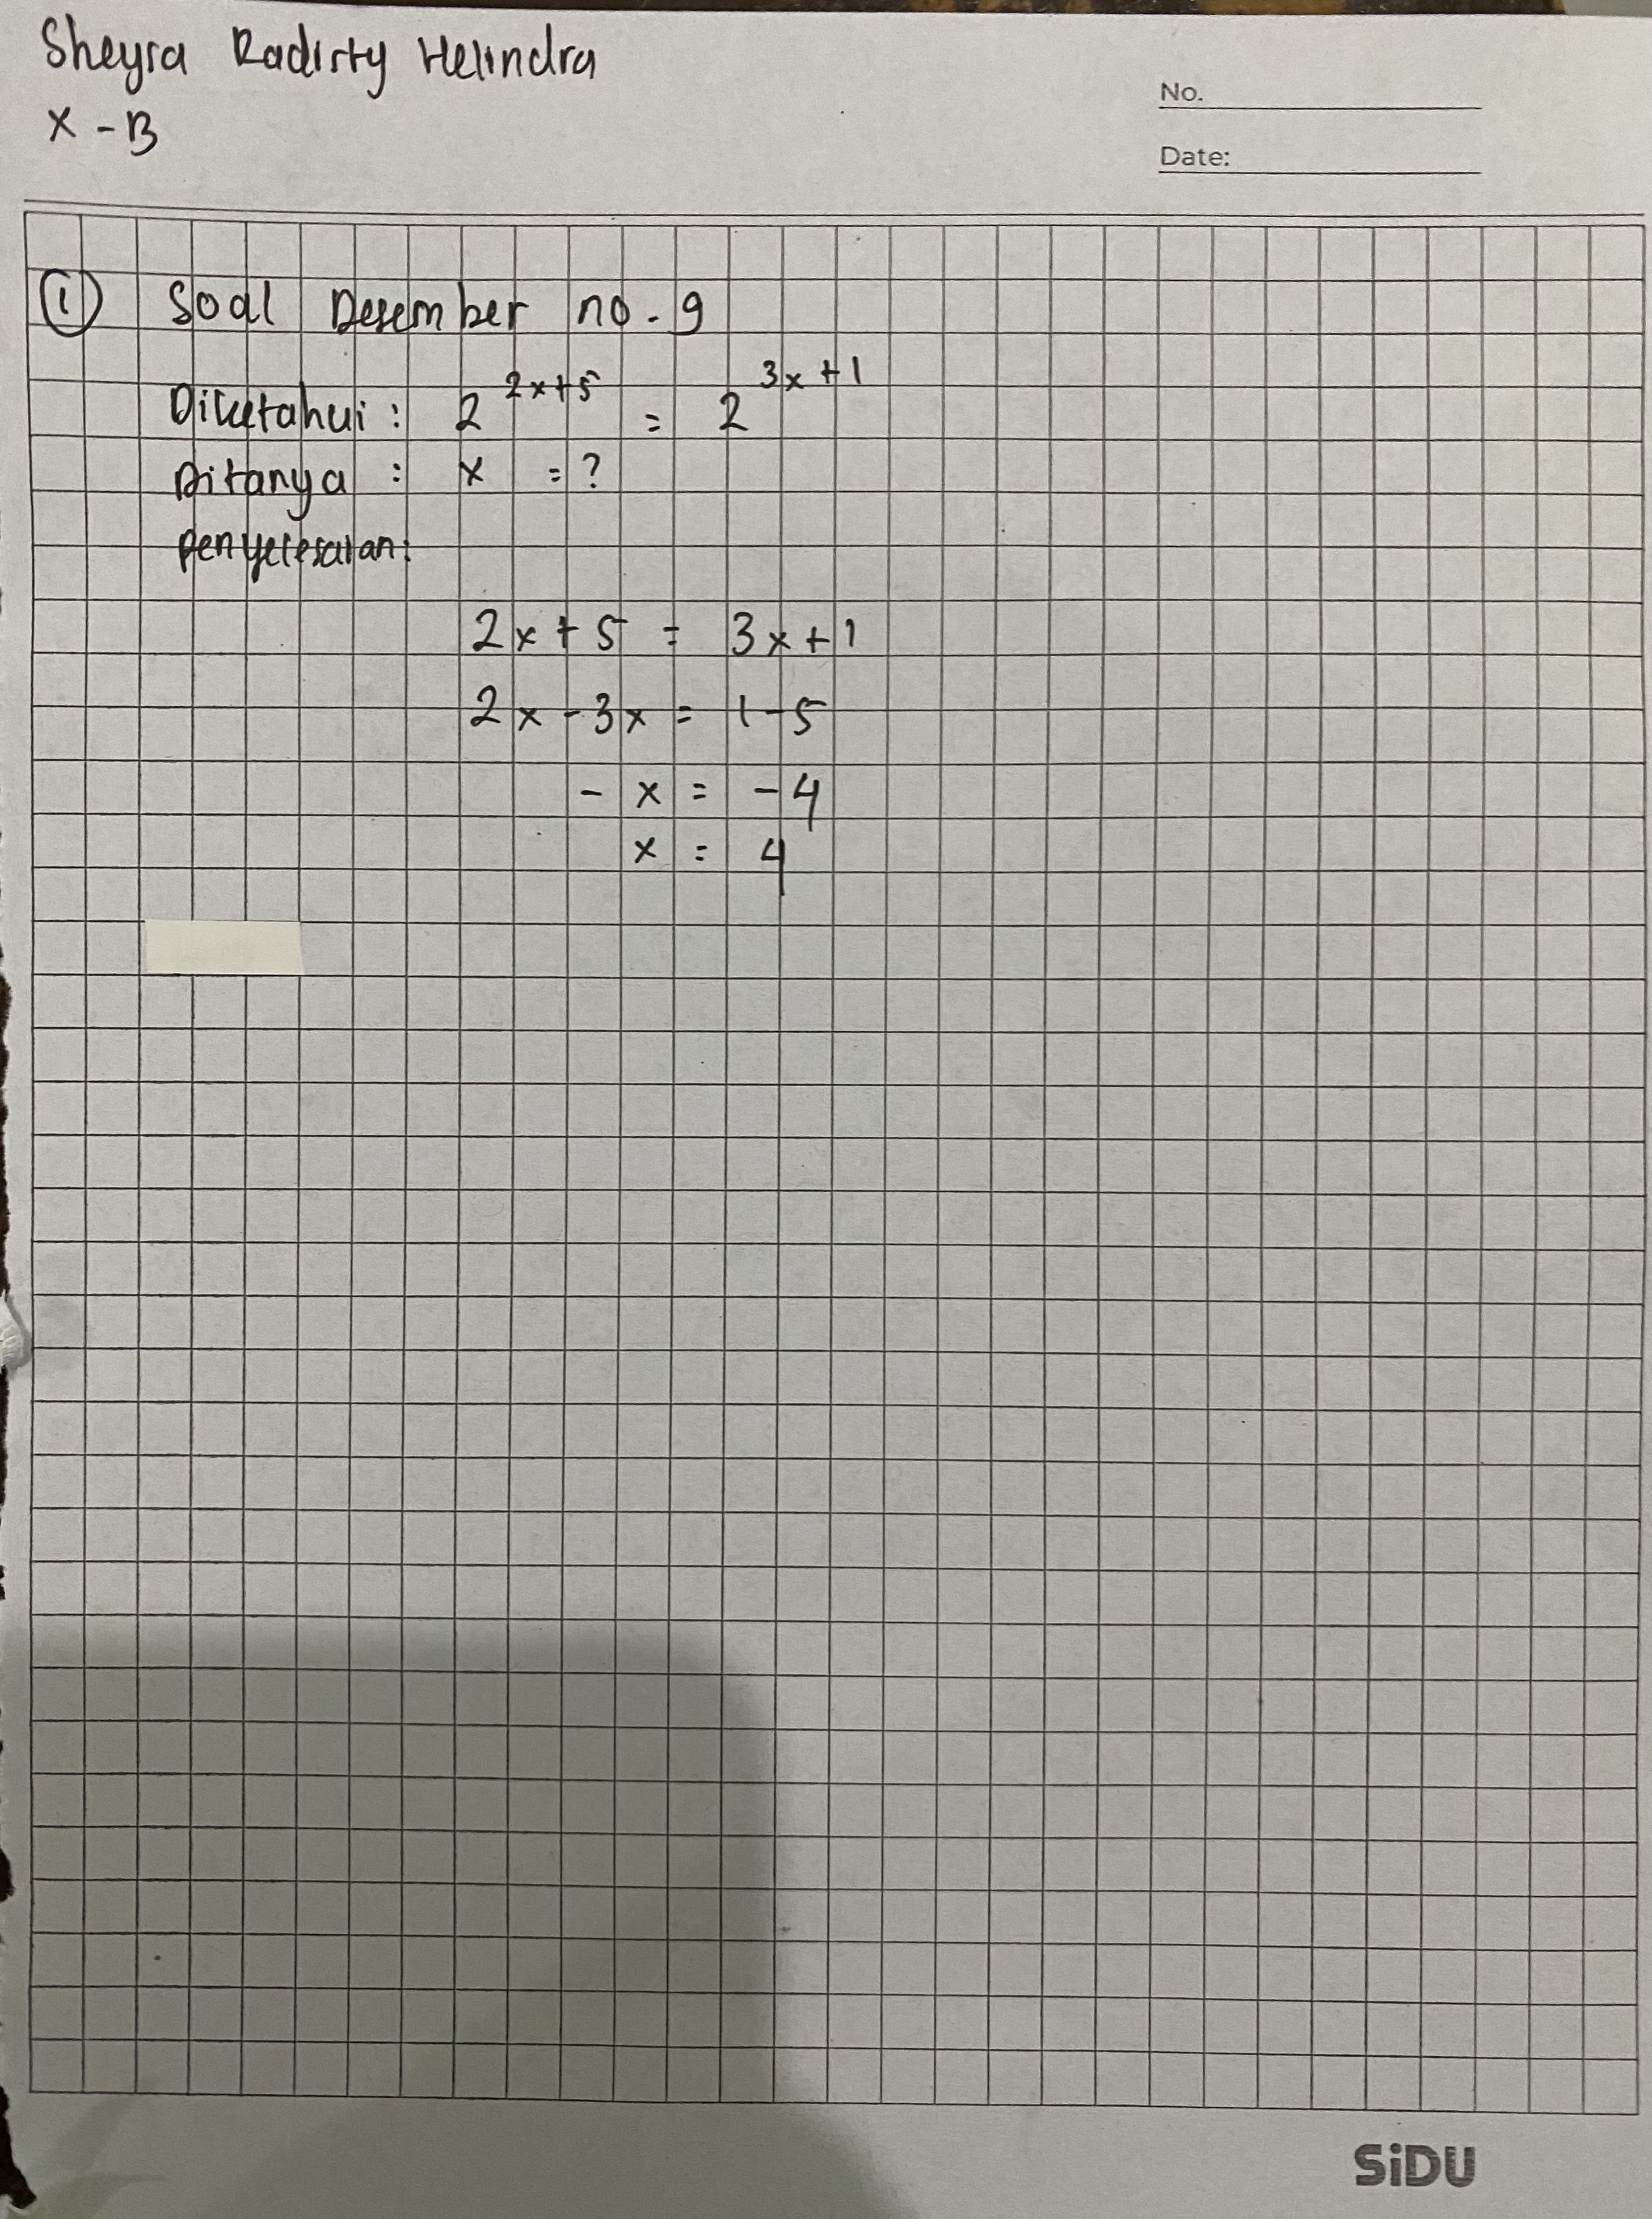 Sheyra Radisty Helindra
X - B
No.
Date:
① Soal Desember no. 9
Diketahui : 2^{2x+5} = 2^{3x+1}
Ditanya : x = ?
Penyelesaian:
2x + 5 = 3x + 1
2x - 3x = 1 - 5
- x = - 4
x = 4
SiDU